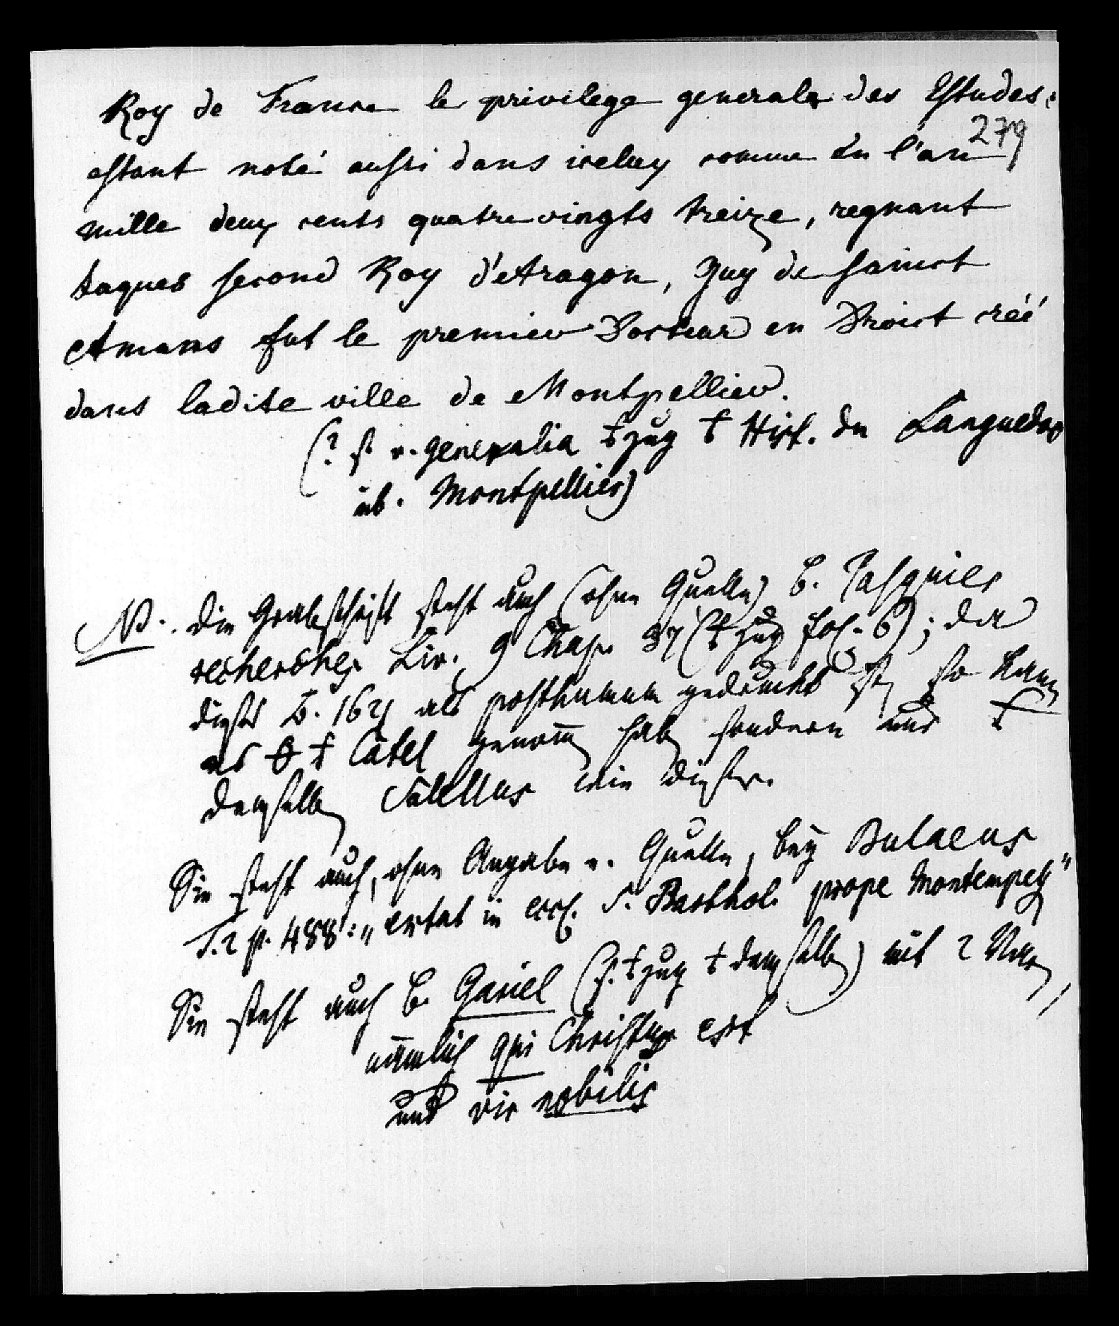 Roy de France le privilege generale des Estudes:
279
estant noté aussi dans iceluy comme én l'an
mille deux cents quatre vingts treize, regnant
Jaques second Roy d'Aragon, Guy de sainct
Amans fut le premier Docteur en Droict créé
dans ladite ville de Montpellier.
(? st v. generalia Hist. du Languedoc
üb. Montpellier)
NB. die Grabschrift steht auch (ohne Quelle) b. Pasquier
recherches Liv. 9 Chap. 37 fol. 6); da
dieses 1621 als posthumum gedruckt ist, so kann
er Catel genom hab sondern und
demselben Catellus wie dieser.
Sie steht auch, ohne Angabe e. Quelle, bey Bulaeus
T. 2 p. 488: "extat in eccl. S. Barthol. prope Montempess"
Sie steht auch b. Gariel demselb) mit 2 Var,
nämlich qui Christus est
und vir nobilis